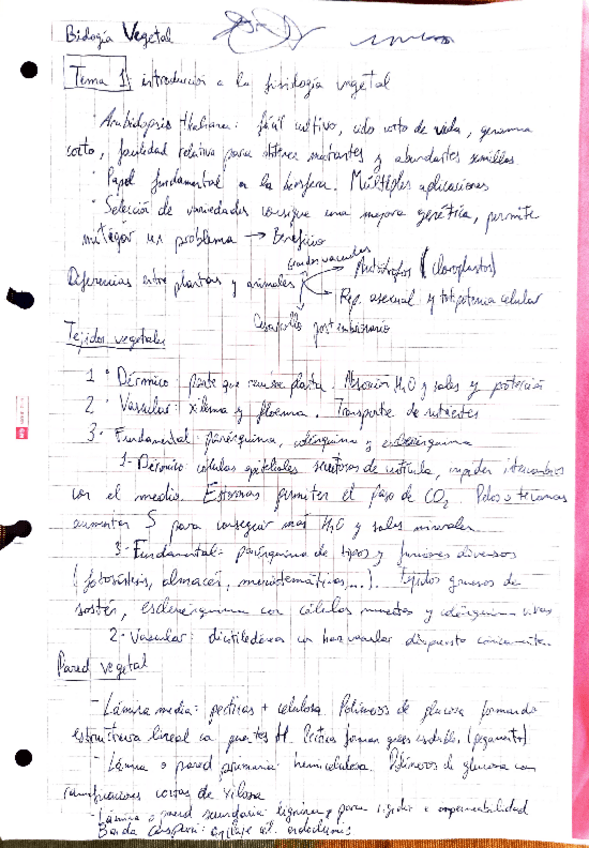 Biología Vegetal
Tema 1: introducción a la fisiología vegetal
· Arabidopsis thaliana: fácil cultivo, ciclo corto de vida, genoma
corto, facilidad relativa para obtener mutantes y abundantes semillas
· Papel fundamental en la biosfera. Múltiples aplicaciones
· Selección de variedades consigue una mejora genética, permite
mitigar un problema → Beneficio
Diferencias entre plantas y animales
Grandes vacuolas
Autótrofos (cloroplastos)
Rep. asexual y totipotencia celular
Desarrollo post embrionario
Tejidos vegetales
1 · Dérmico: parte que recubre planta. Absorción H2O y sales y protección
2 · Vascular: xilema y floema. Transporte de nutrientes
3 · Fundamental: parénquima, colénquima y esclerénquima
1- Dérmico: células epiteliales secretoras de cutícula, impiden intercambios
con el medio. Estomas permiten el paso de CO2. Pelos o tricomas
aumentan S para conseguir más H2O y sales minerales
3- Fundamental: parénquima de tipos y funciones diversos
(fotosíntesis, almacén, meristemáticas,...). Tejidos gruesos de
sostén, esclerénquima con células muertas y colénquima vivas
2- Vascular: dicotiledóneas con haz vascular dispuesto
Pared vegetal
- Lámina media: pectinas + celulosa. Polímeros de glucosa formando
estructura lineal con puentes H. Pectinas forman (pegamento)
- Lámina o pared primaria: hemicelulosa. Polímeros de glucosa con
ramificaciones cortas de xilosa
- Lámina o pared secundaria: lignina para rigidez e impermeabilidad
Banda Caspari: endodermis